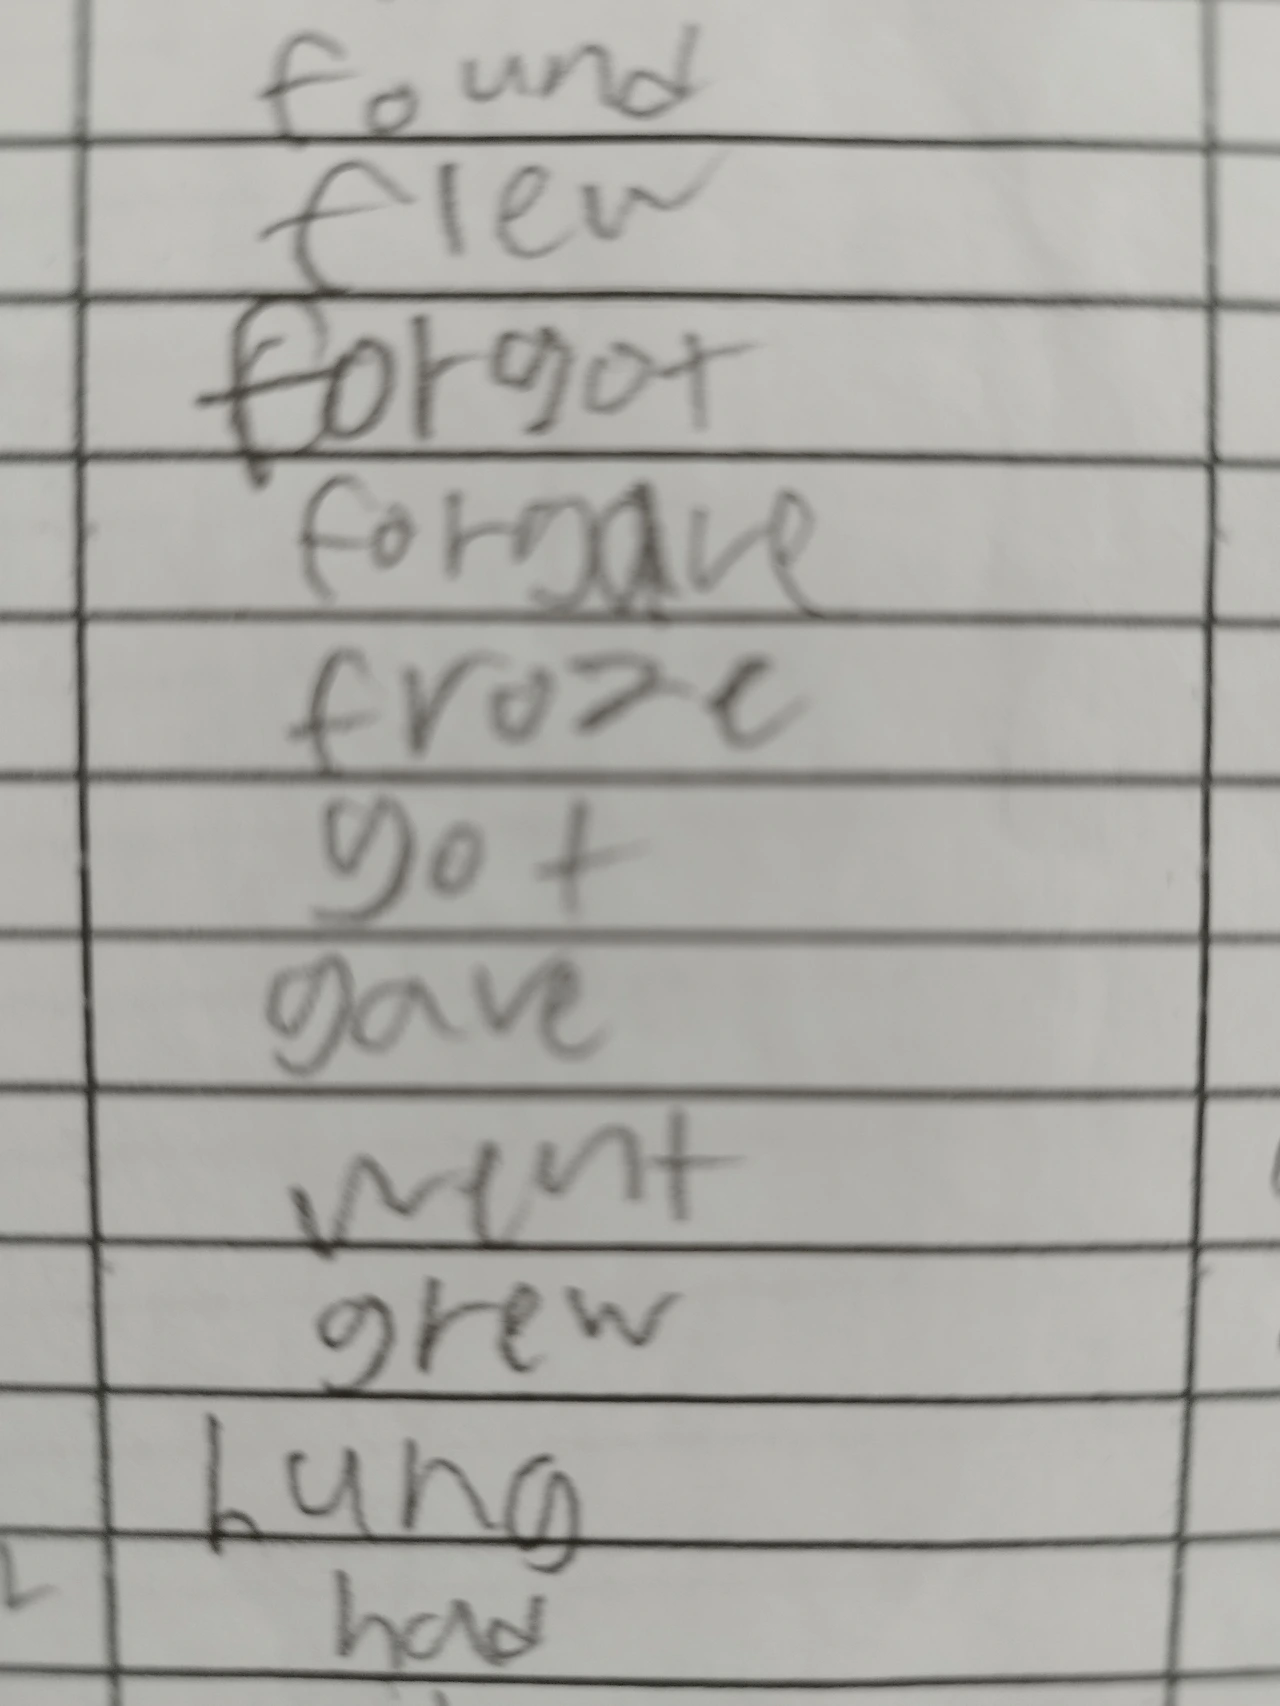 found
flew
forgot
forgave
froze
got
gave
went
grew
hung
had